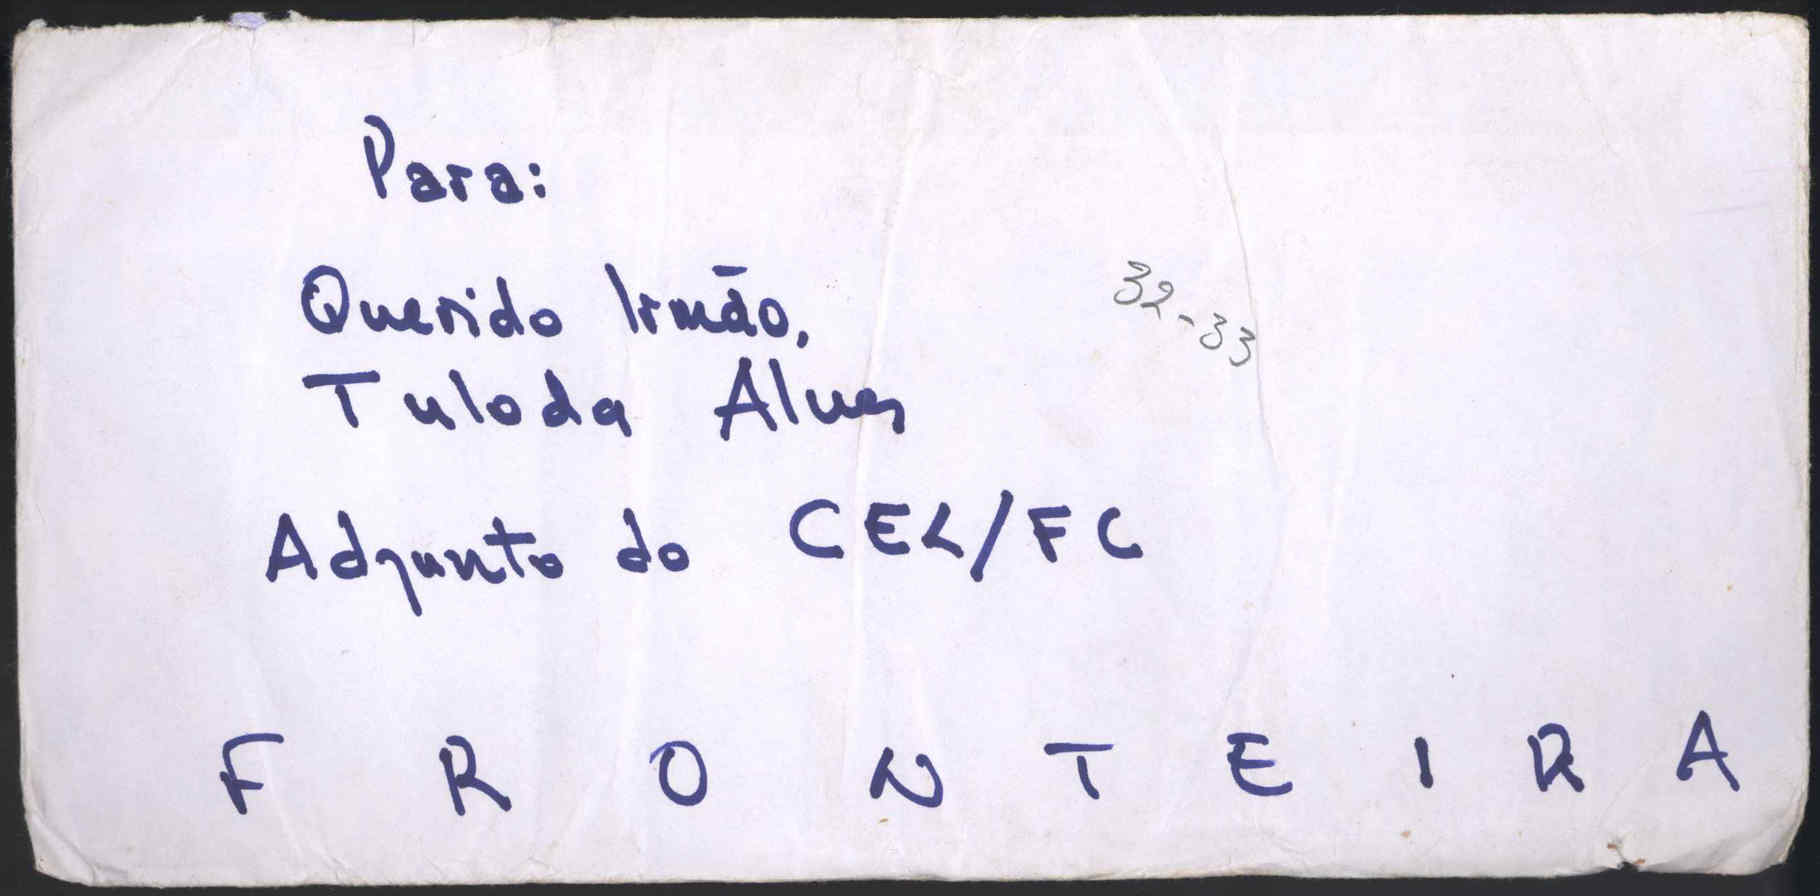 Para:
Querido Irmão,
32-33
Tuloda Alves
Adjunto do CEL/FC
F R O N T E I R A